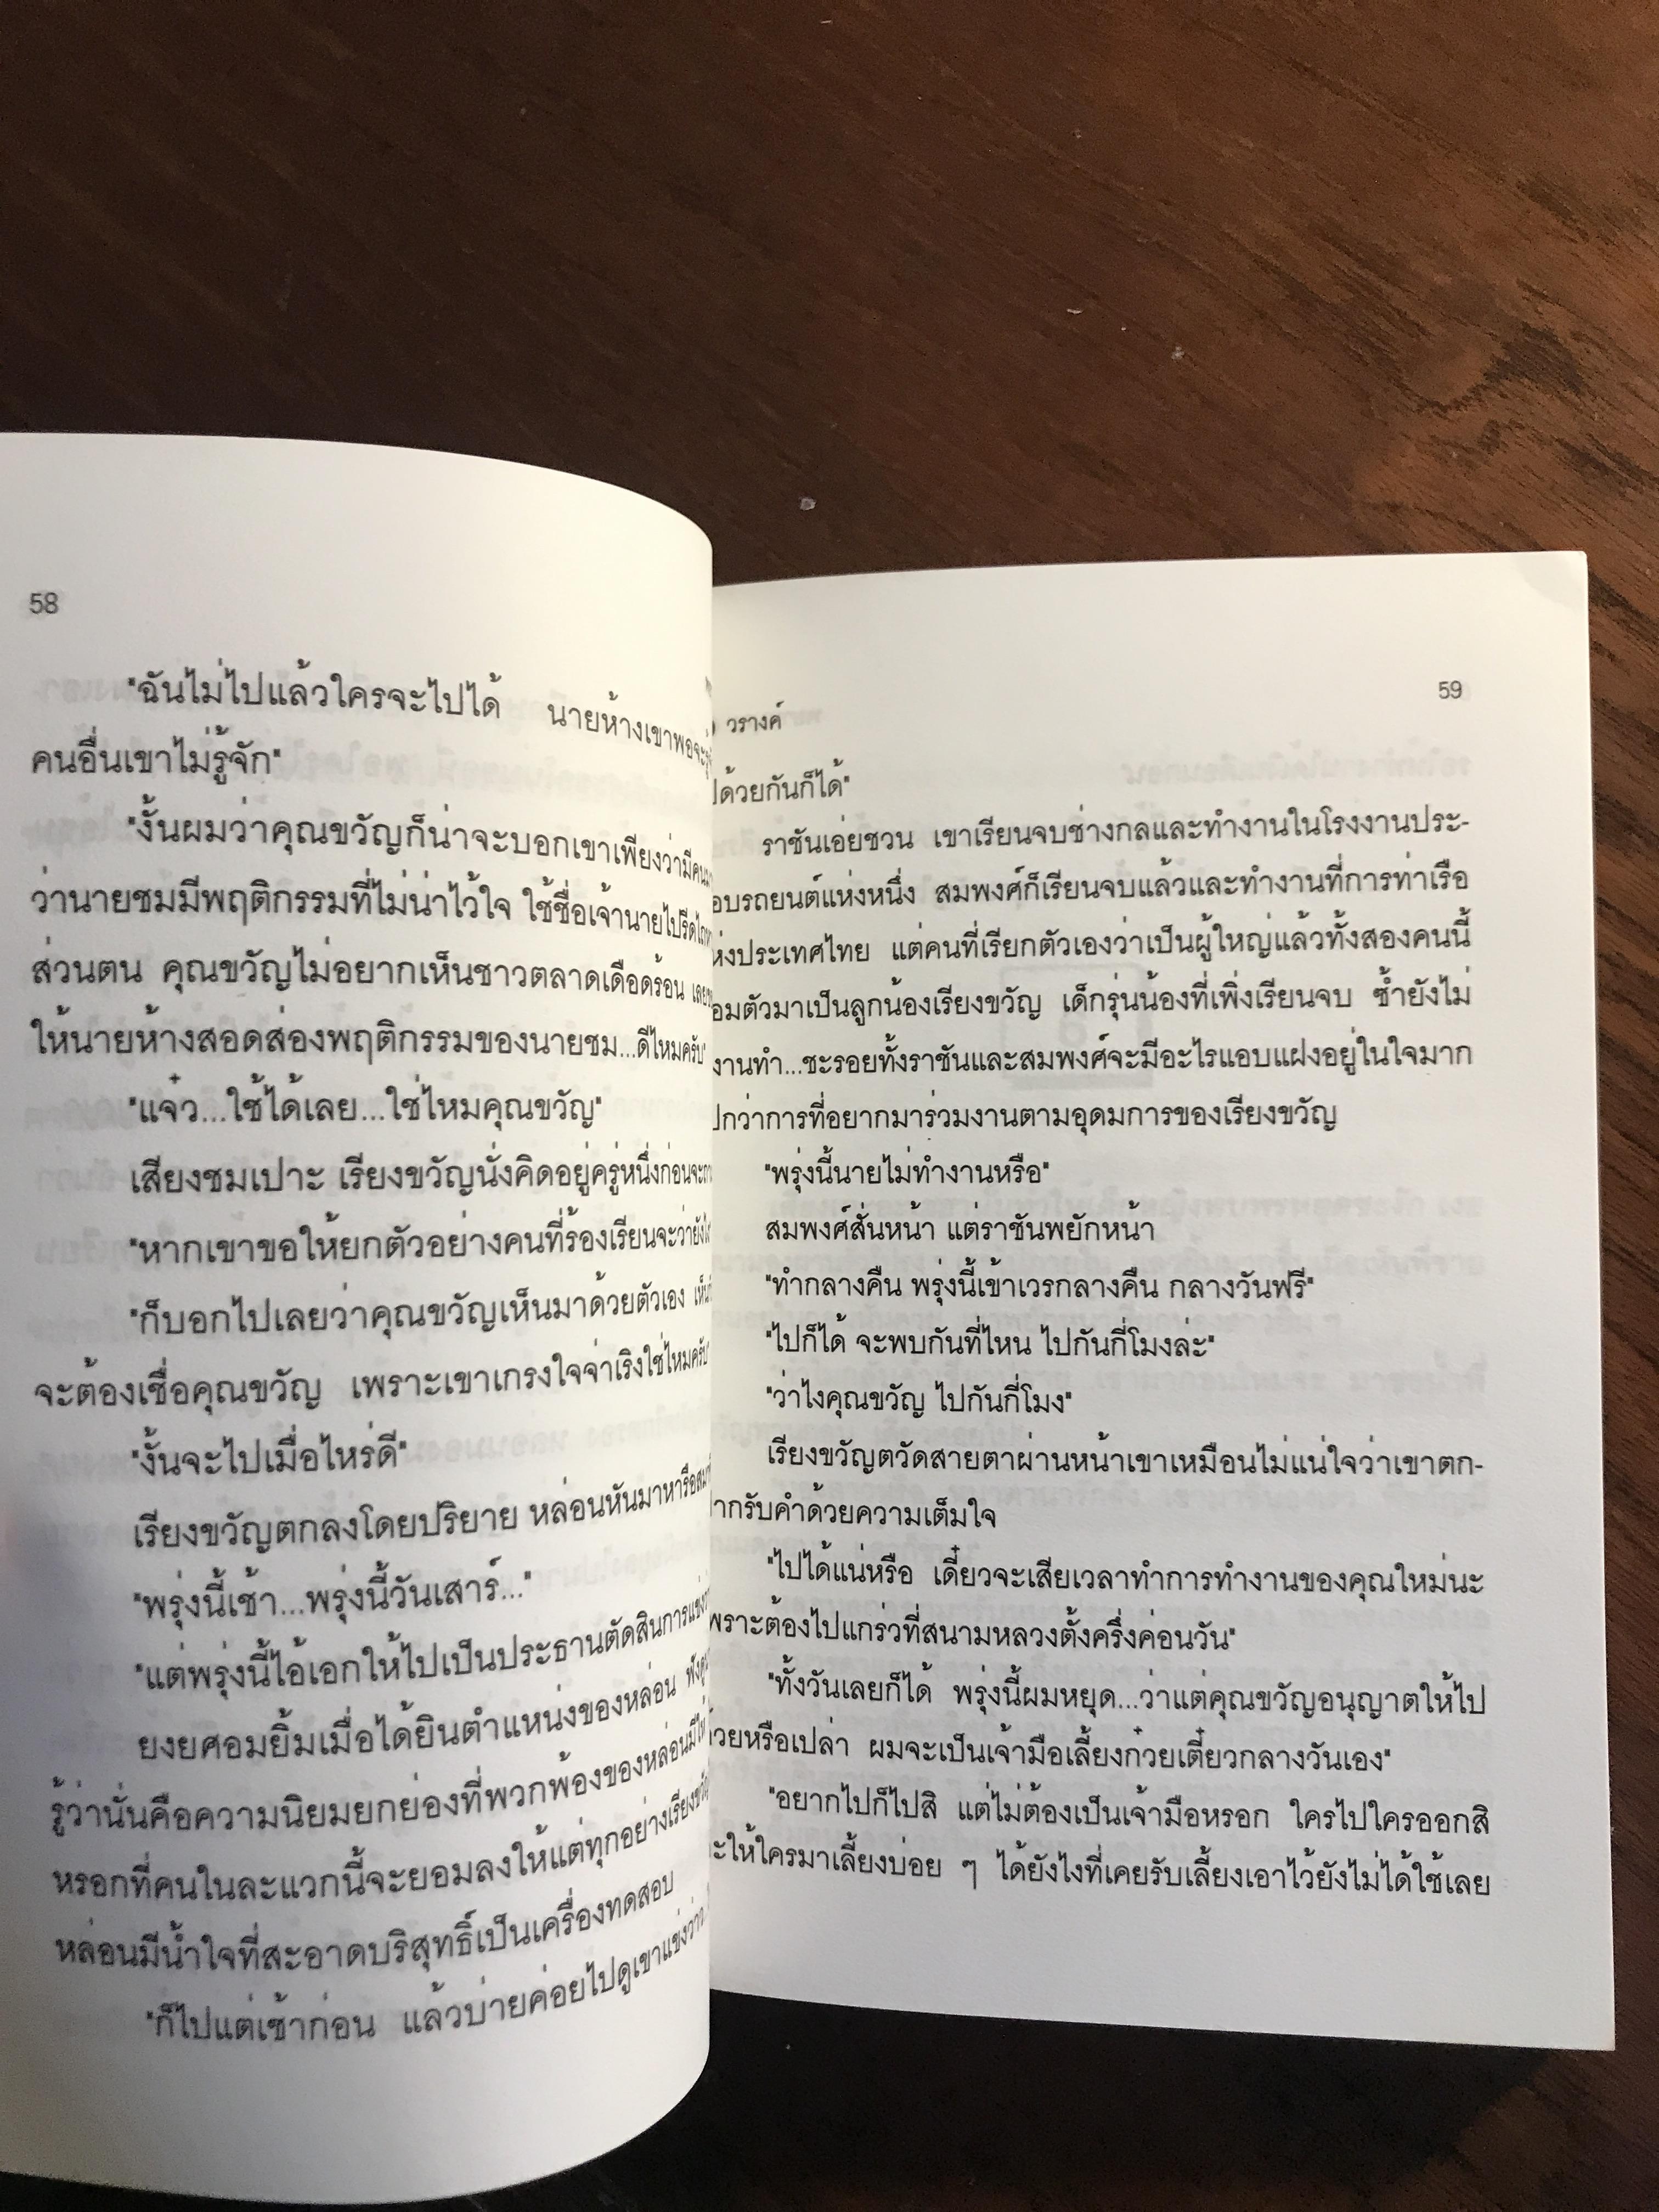 58
"ฉันไม่ไปแล้วใครจะไปได้ นายห้างเขาพอจะรู้
คนอื่นเขาไม่รู้จัก"
"งั้นผมว่าคุณขวัญก็น่าจะบอกเขาเพียงว่ามีคน
ว่านายชมมีพฤติกรรมที่ไม่น่าไว้ใจ ใช้ชื่อเจ้านายไปรีดไถ
ส่วนตน คุณขวัญไม่อยากเห็นชาวตลาดเดือดร้อน เลย
ให้นายห้างสอดส่องพฤติกรรมของนายชม...ดีไหมครับ"
"แจ๋ว...ใช้ได้เลย...ใช่ไหมคุณขวัญ"
เสียงชมเปาะ เรียงขวัญนั่งคิดอยู่ครู่หนึ่งก่อนจะ
"หากเขาขอให้ยกตัวอย่างคนที่ร้องเรียนจะว่ายังไง
"ก็บอกไปเลยว่าคุณขวัญเห็นมาด้วยตัวเอง
จะต้องเชื่อคุณขวัญ เพราะเขาเกรงใจจ่าเริงใช่ไหมครับ"
"งั้นจะไปเมื่อไหร่ดี"
เรียงขวัญตกลงโดยปริยาย หล่อนหันมาหารือ
"พรุ่งนี้เช้า...พรุ่งนี้วันเสาร์..."
"แต่พรุ่งนี้ไอ้เอกให้ไปเป็นประธานตัดสินการแข่ง
ยงยศอมยิ้มเมื่อได้ยินตำแหน่งของหล่อน
รู้ว่านั่นคือความนิยมยกย่องที่พวกพ้องของหล่อนมีให้
หรอกที่คนในละแวกนี้จะยอมลงให้แต่ทุกอย่างเรียงขวัญ
หล่อนมีน้ำใจที่สะอาดบริสุทธิ์เป็นเครื่องทดสอบ
"ก็ไปแต่เช้าก่อน แล้วบ่ายค่อยไปดูเขาแข่งว่าว
59
วรางค์
ปด้วยกันก็ได้"
ราชันเอ่ยชวน เขาเรียนจบช่างกลและทำงานในโรงงานประ-
อบรถยนต์แห่งหนึ่ง สมพงศ์ก็เรียนจบแล้วและทำงานที่การท่าเรือ
ห่งประเทศไทย แต่คนที่เรียกตัวเองว่าเป็นผู้ใหญ่แล้วทั้งสองคนนี้
อมตัวมาเป็นลูกน้องเรียงขวัญ เด็กรุ่นน้องที่เพิ่งเรียนจบ ซ้ำยังไม่
งานทำ...ชะรอยทั้งราชันและสมพงศ์จะมีอะไรแอบแฝงอยู่ในใจมาก
ปกว่าการที่อยากมาร่วมงานตามอุดมการของเรียงขวัญ
"พรุ่งนี้นายไม่ทำงานหรือ"
สมพงศ์สั่นหน้า แต่ราชันพยักหน้า
"ทำกลางคืน พรุ่งนี้เข้าเวรกลางคืน กลางวันฟรี"
"ไปก็ได้ จะพบกันที่ไหน ไปกันกี่โมงล่ะ"
"ว่าไงคุณขวัญ ไปกันกี่โมง"
เรียงขวัญตวัดสายตาผ่านหน้าเขาเหมือนไม่แน่ใจว่าเขาตก-
ปากรับคำด้วยความเต็มใจ
"ไปได้แน่หรือ เดี๋ยวจะเสียเวลาทำการทำงานของคุณใหม่นะ
พราะต้องไปแกร่วที่สนามหลวงตั้งครึ่งค่อนวัน"
"ทั้งวันเลยก็ได้ พรุ่งนี้ผมหยุด...ว่าแต่คุณขวัญอนุญาตให้ไป
ด้วยหรือเปล่า ผมจะเป็นเจ้ามือเลี้ยงก๋วยเตี๋ยวกลางวันเอง"
"อยากไปก็ไปสิ แต่ไม่ต้องเป็นเจ้ามือหรอก ใครไปใครออกสิ
จะให้ใครมาเลี้ยงบ่อย ๆ ได้ยังไงที่เคยรับเลี้ยงเอาไว้ยังไม่ได้ใช้เลย